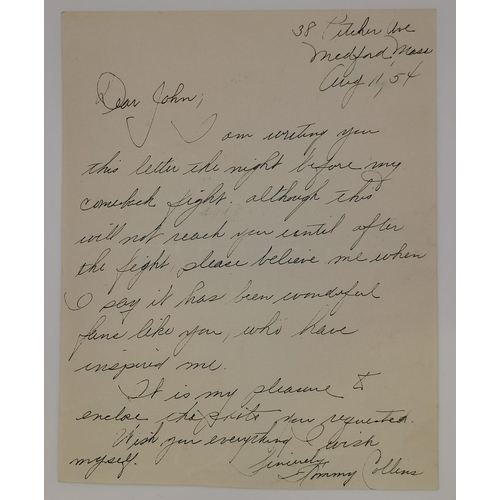 38 Pitcher Ave
Medford, Mass
Aug 11, 54
Dear John,
I am writing you
this letter the night before my
comeback fight. although this
will not reach you until after
the fight, please believe me when
I say it has been wonderful
fans like you, who have
inspired me.
It is my pleasure to
enclose the photo you requested.
Wish you everything I wish
myself.
Sincerely,
Tommy Collins